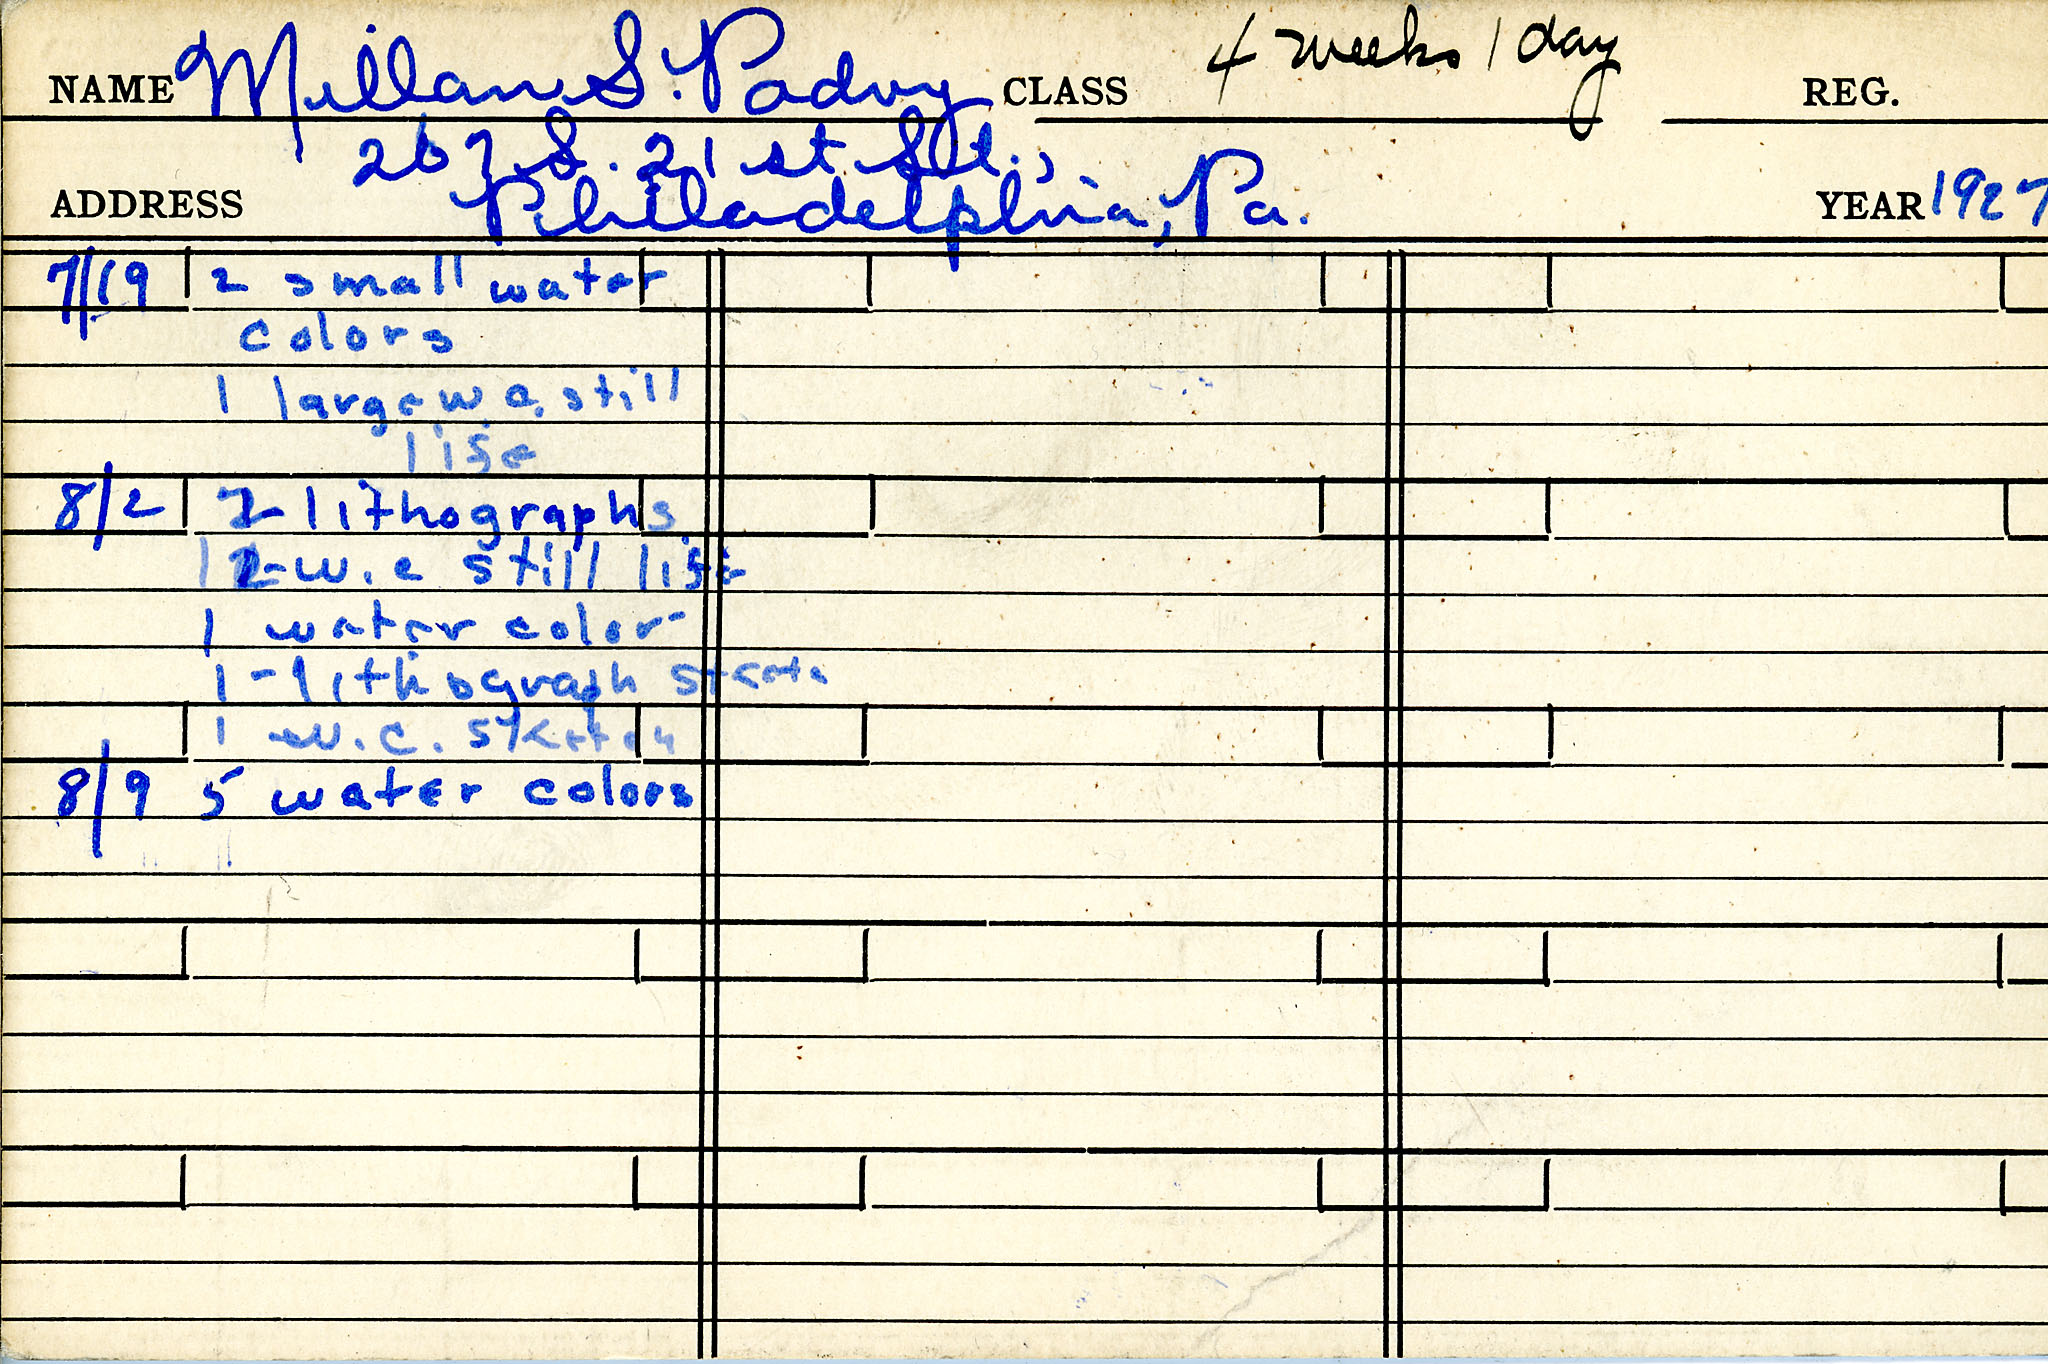 NAME Millan S. Padvy CLASS 4 weeks 1 day REG.
267 S. 21 st St.,
ADDRESS Philadelphia, Pa. YEAR 1927
7/19 2 small water
colors
1 large w c. still
life
8/2 2 lithographs
1 w.c still life
1 water color
1 - lithograph sketch
1 w.c. sketch
8/9 5 water colors